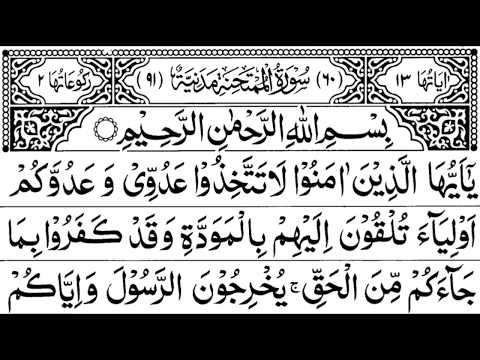 اٰیَاتُهَا ۱۳ (۶۰) سُوْرَةُ الْمُمْتَحِنَةِ مَدَنِیَّةٌ (۹۱) رُكُوْعَاتُهَا ۲
بِسْمِ اللّٰهِ الرَّحْمٰنِ الرَّحِیْمِ
یٰۤاَیُّهَا الَّذِیْنَ اٰمَنُوْا لَا تَتَّخِذُوْا عَدُوِّیْ وَ عَدُوَّكُمْ
اَوْلِیَآءَ تُلْقُوْنَ اِلَیْهِمْ بِالْمَوَدَّةِ وَ قَدْ كَفَرُوْا بِمَا
جَآءَكُمْ مِّنَ الْحَقِّ ۚ یُخْرِجُوْنَ الرَّسُوْلَ وَ اِیَّاكُمْ